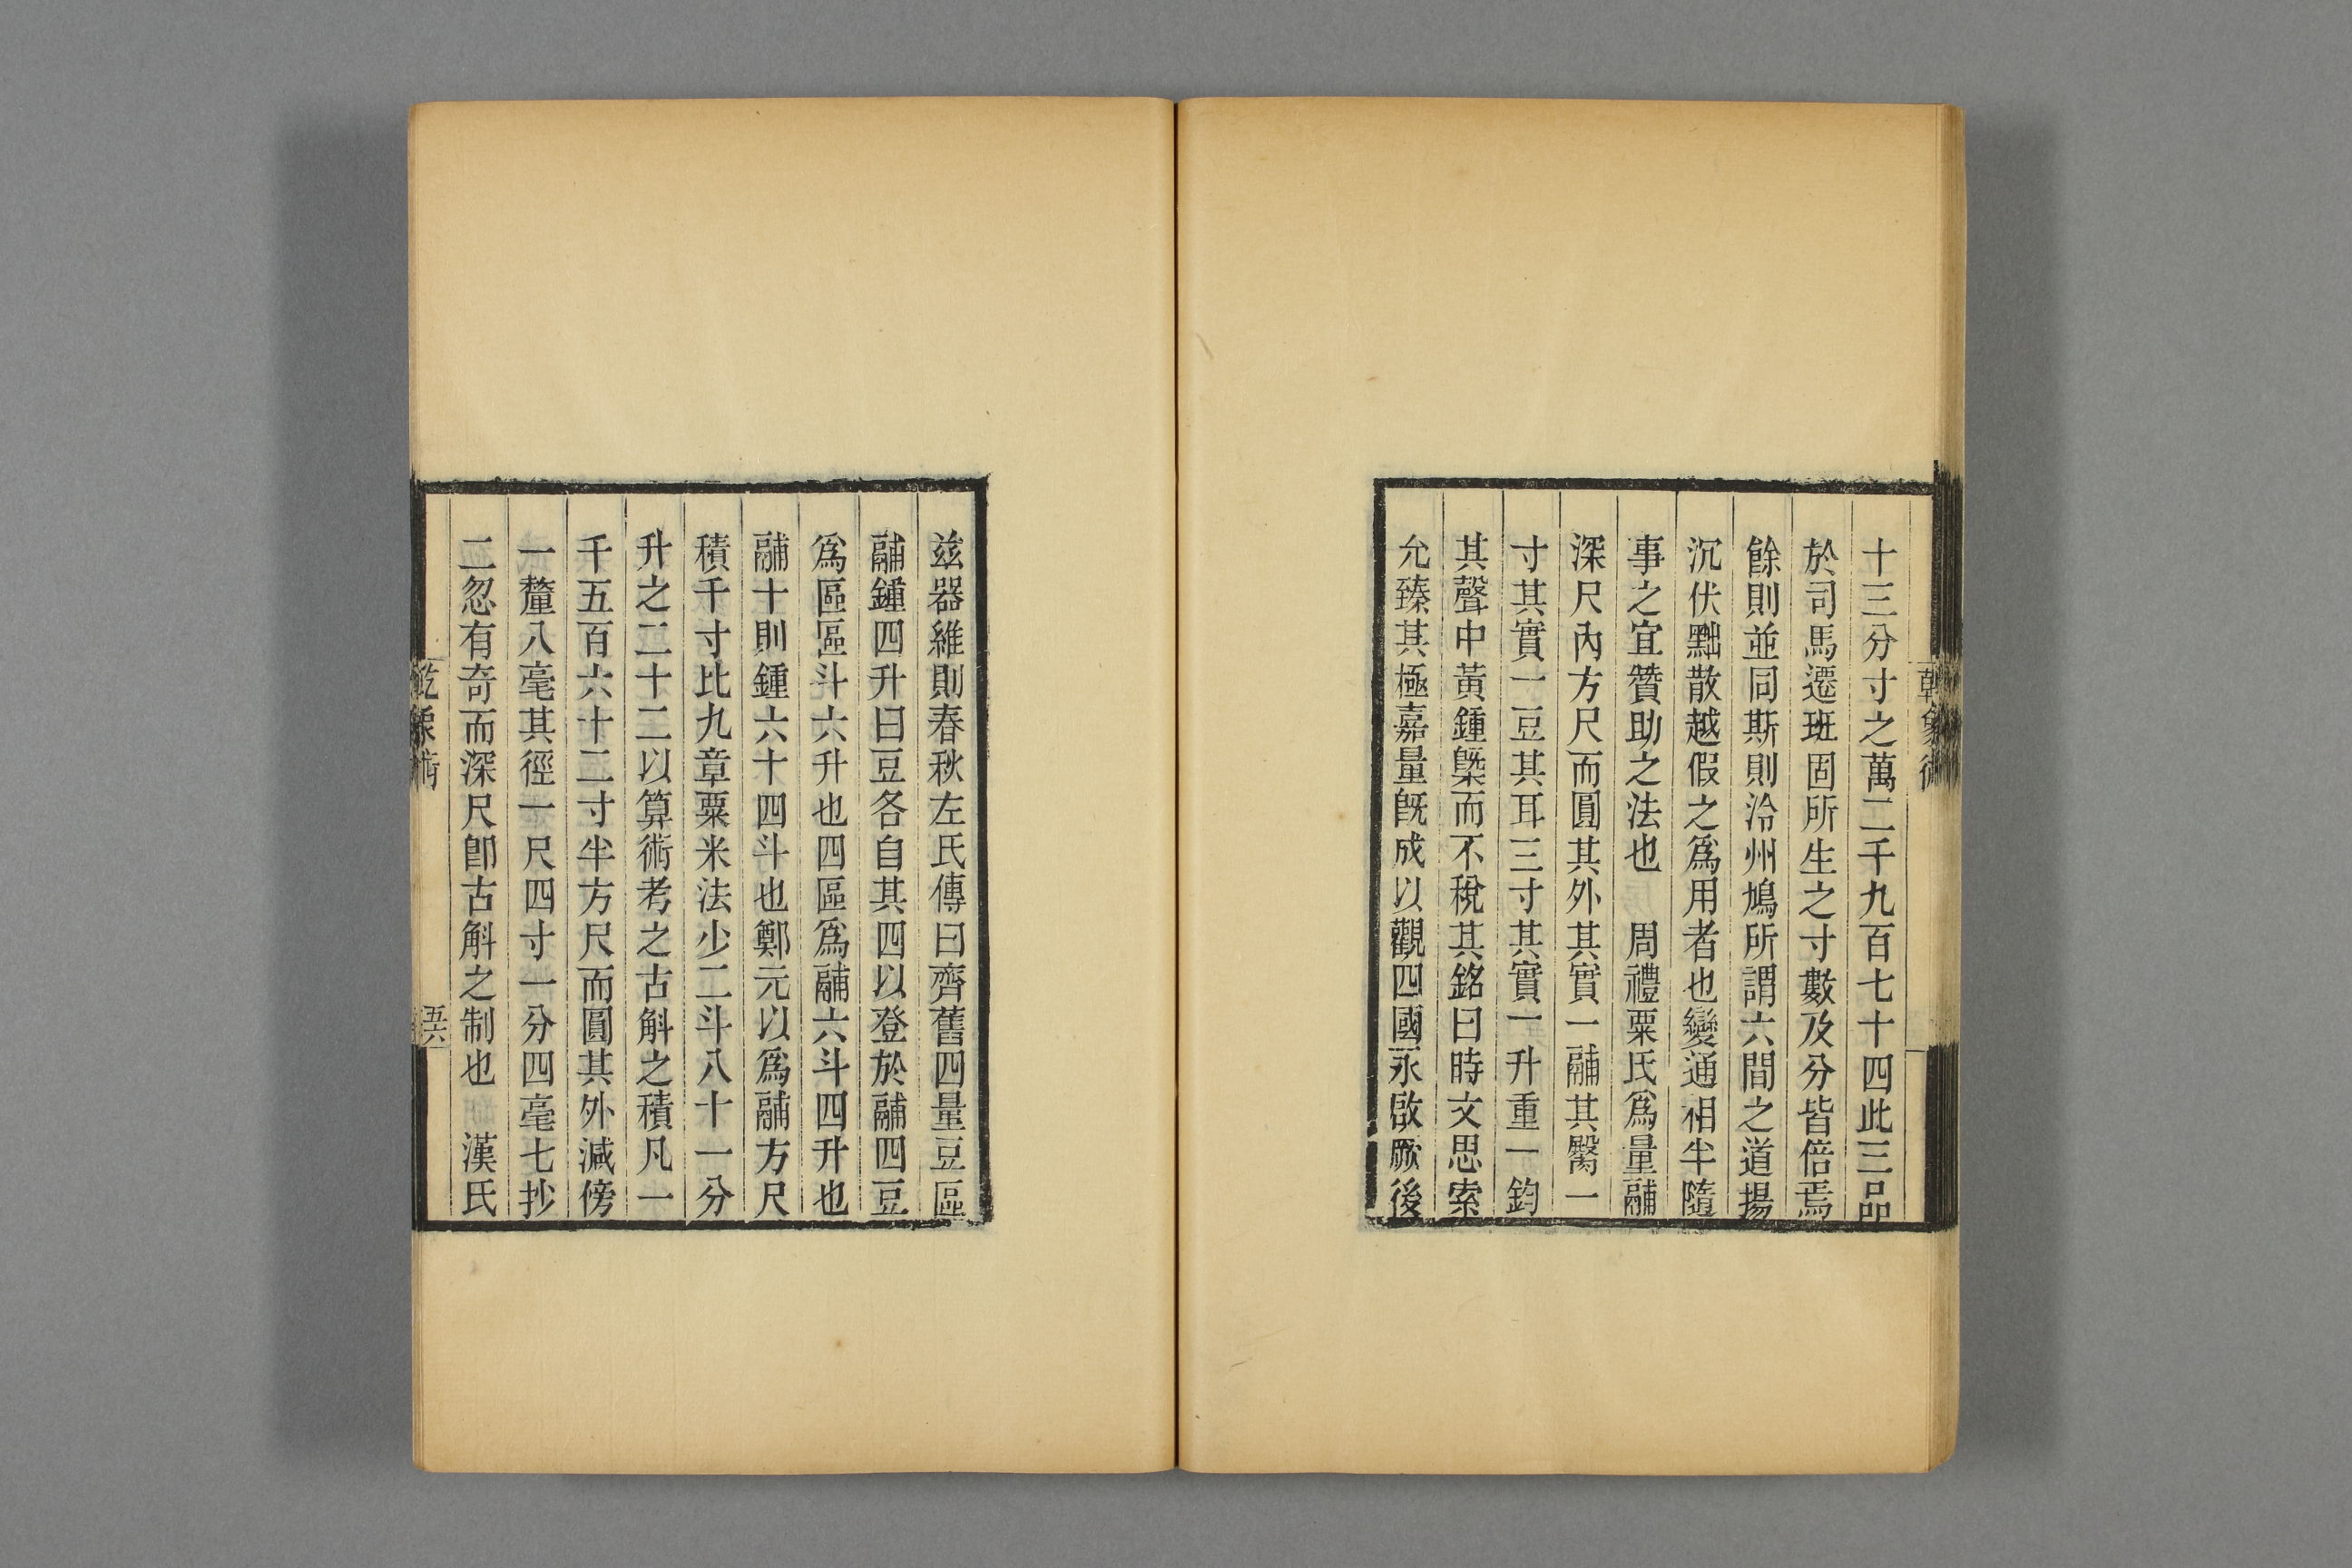 十三分寸之萬二千九百七十四此三品
於司馬遷班固所生之寸數及分皆倍焉
餘則並同斯則泠州鳩所謂六間之道揚
沉伏黜散越假之爲用者也變通相半隨
事之宜贊助之法也　周禮㮚氏爲量鬴
深尺內方尺而圓其外其實一鬴其臀一
寸其實一豆其耳三寸其實一升重一鈞
其聲中黃鍾槩而不稅其銘曰時文思索
允臻其極嘉量旣成以觀四國永啟厥後
兹器維則春秋左氏傳曰齊舊四量豆區
鬴鍾四升曰豆各自其四以登於鬴四豆
爲區區斗六升也四區爲鬴六斗四升也
鬴十則鍾六十四斗也鄭元以爲鬴方尺
積千寸比九章粟米法少二斗八十一分
升之二十二以算術考之古斛之積凡一
千五百六十二寸半方尺而圓其外減傍
一釐八毫其徑一尺四寸一分四毫七抄
二忽有奇而深尺卽古斛之制也　漢氏
乾象術